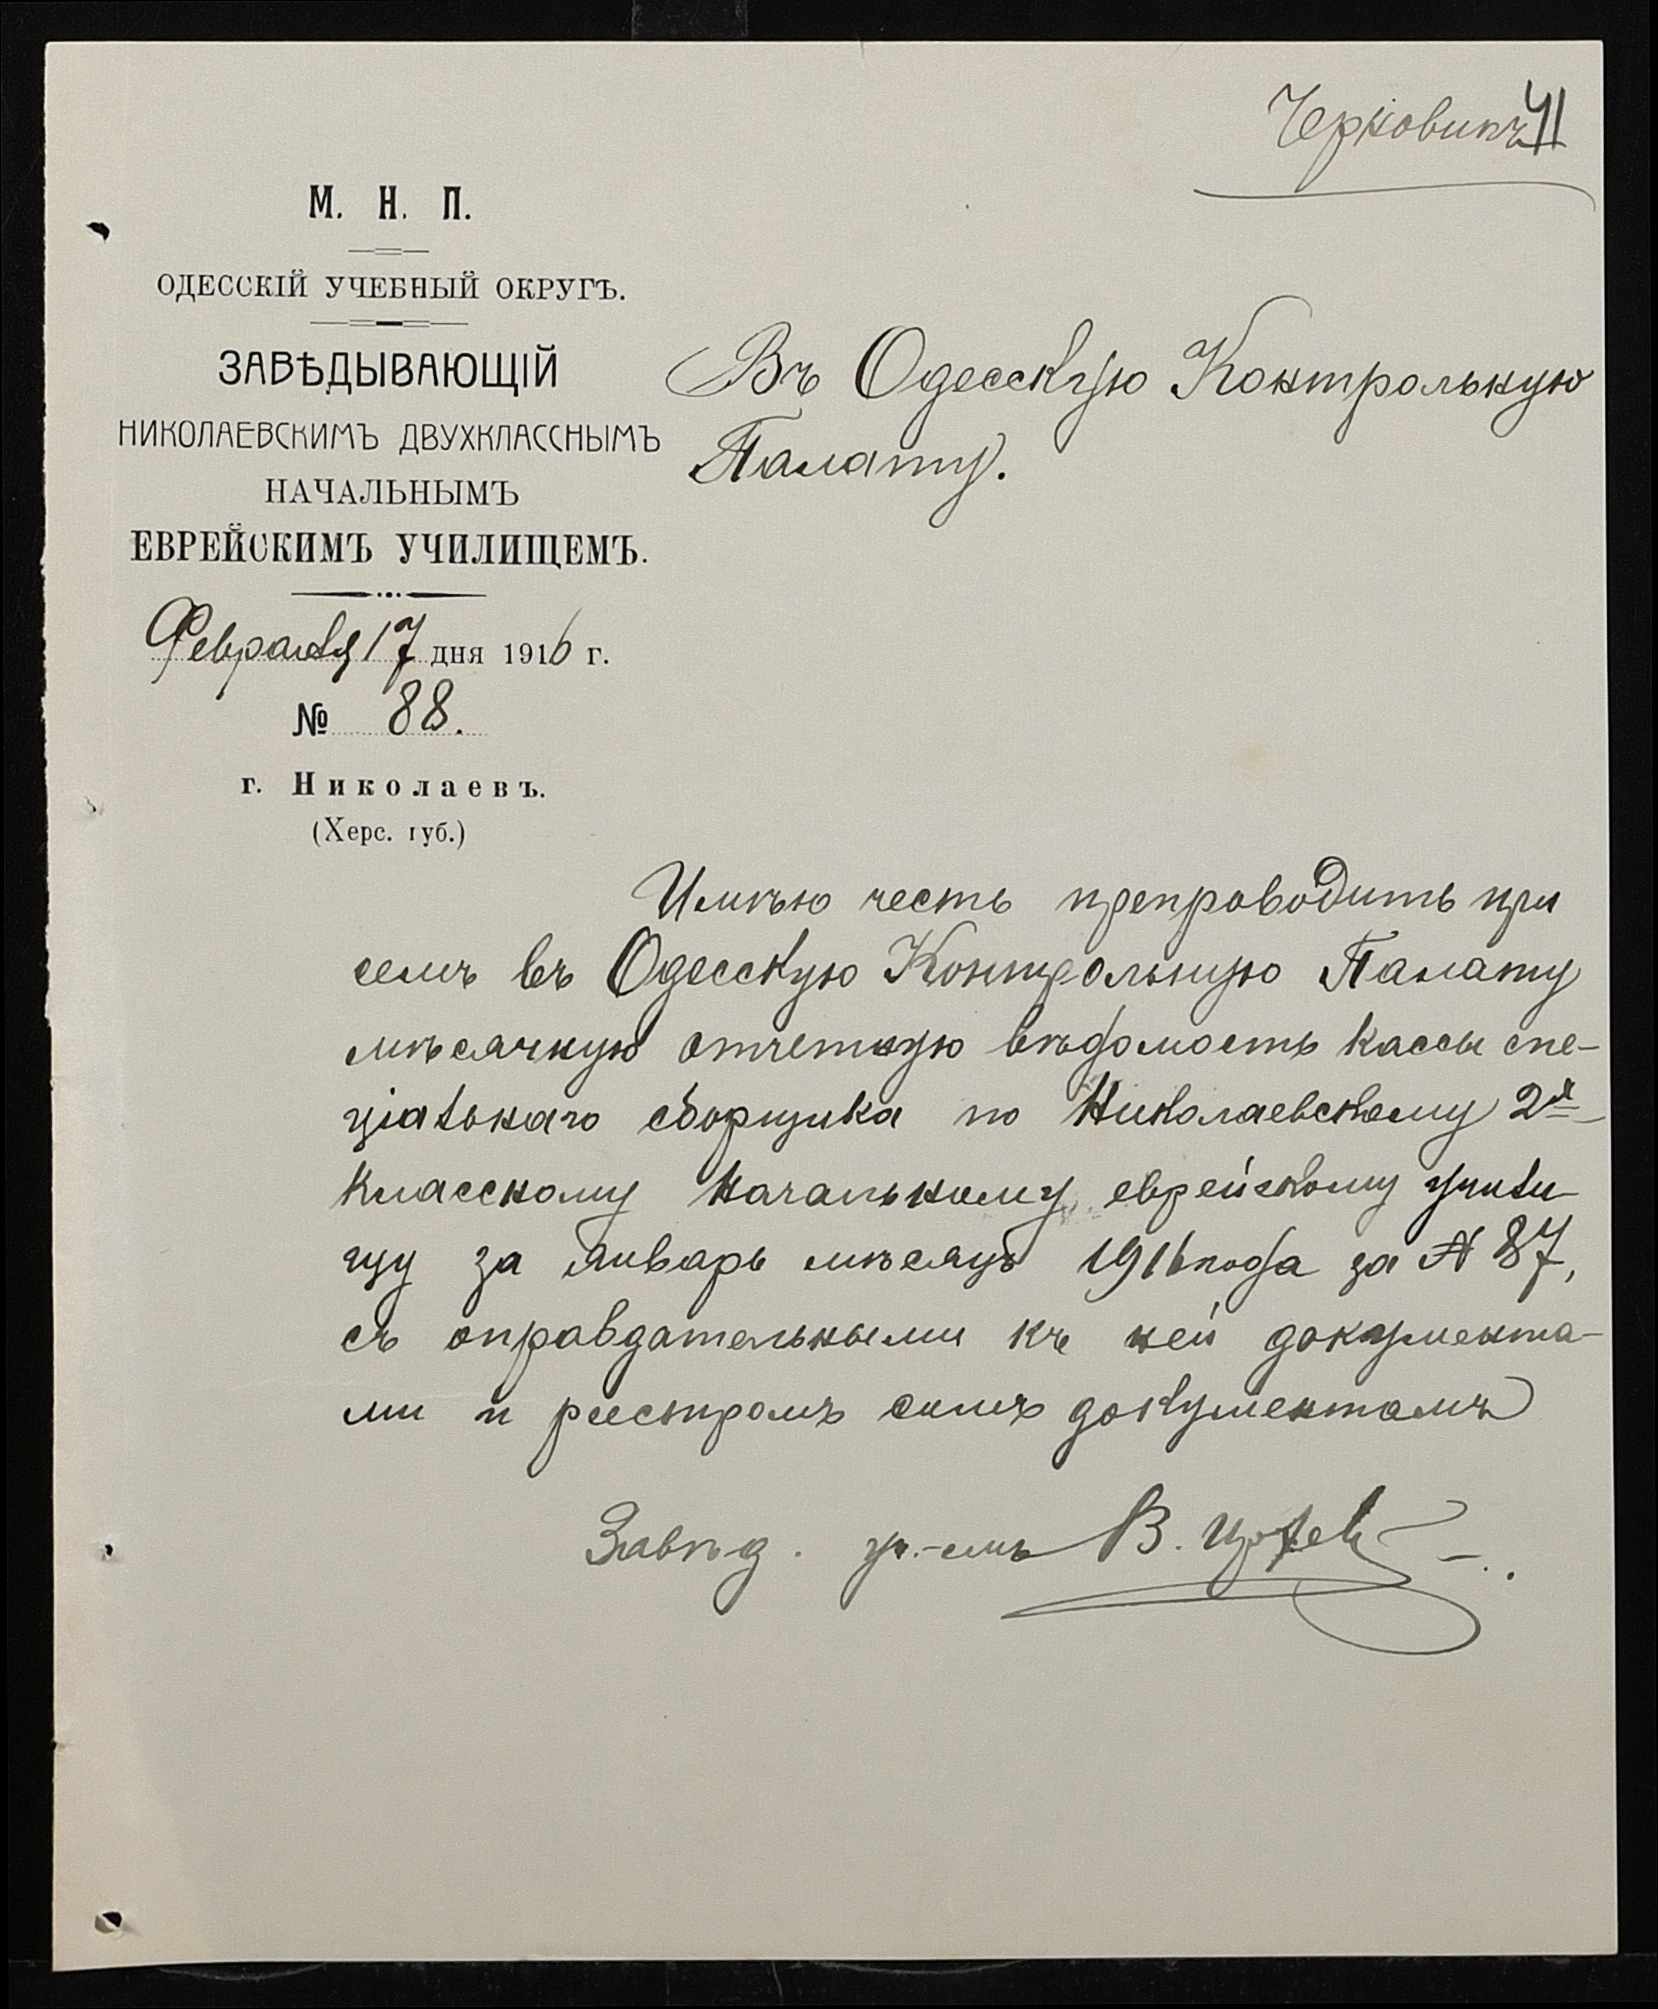 41
М. Н. П.
ОДЕССКІЙ УЧЕБНЫЙ ОКРУГЪ.
ЗАВѢДЫВАЮЩІЙ
НИКОЛАЕВСКИМЪ ДВУХКЛАССНЫМЪ
НАЧАЛЬНЫМЪ
ЕВРЕЙСКИМЪ УЧИЛИЩЕМЪ.
Февраля 17 дня 1916 г.
№ 88.
г. Николаевъ.
(Херс. губ.)
Въ Одесскую Контрольную
Палату.
Имѣю честь препроводить при
семъ въ Одесскую Контрольную Палату
мѣсячную отчетную вѣдомость кассы спе-
ціальнаго сборщика по Николаевскому 2х-
классному начальному еврейскому учили-
щу за январь мѣсяцъ 1916 года за № 87,
съ оправдательными къ ней документа-
ми и реестромъ симъ документамъ
Завѣд. уч.-емъ В.